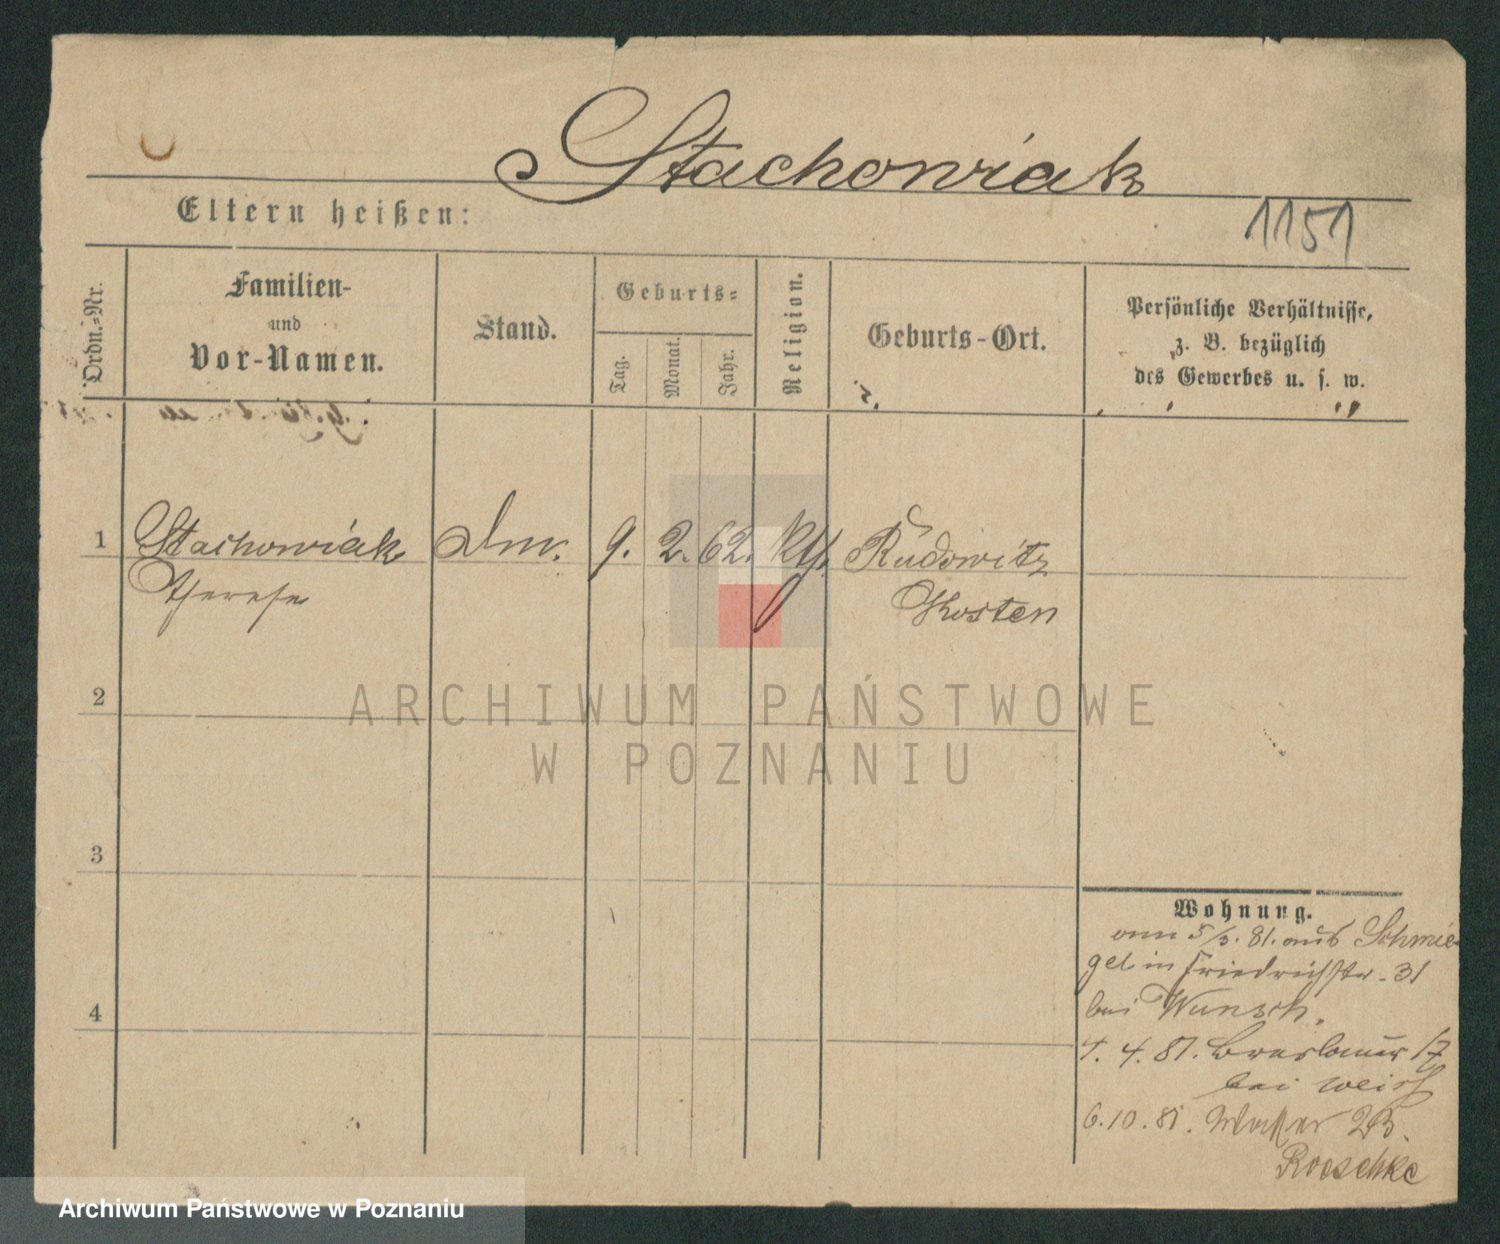 Stachowiak
Eltern heißen:
1151
Ordn.-Nr.
Familien-
und
Vor-Namen.
Stand.
Geburts-
Tag.
Monat.
Jahr.
Religion.
Geburts-Ort.
Persönliche Verhältnisse,
z. B. bezüglich
des Gewerbes u. s. w.
1
Stachowiak
Therese
9. 2. 62. kth.
Rudowitz
Kosten
2
3
4
ARCHIWUM PAŃSTWOWE
W POZNANIU
Wohnung.
5/3. 81. aus Schmie-
gel in Friedrichstr. 31
bei Wunsch.
1. 4. 81. Breslauer 17
bei Weiss
6. 10. 81.
Roeschke
Archiwum Państwowe w Poznaniu